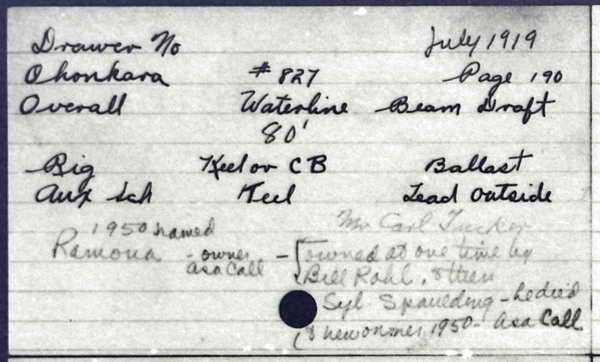 Drawer No July 1919
Ohonkara # 827 Page 190
Overall Waterline Beam Draft
80'
Rig Keel or CB Ballast
Aux Sch Keel Lead Outside
Mr Carl Tucker
1950 named
Ramona - owner - owned at one time by
Asa Call Bill Rohl, & then
Syl Spaulding - he died
(& new owner 1950 - Asa Call